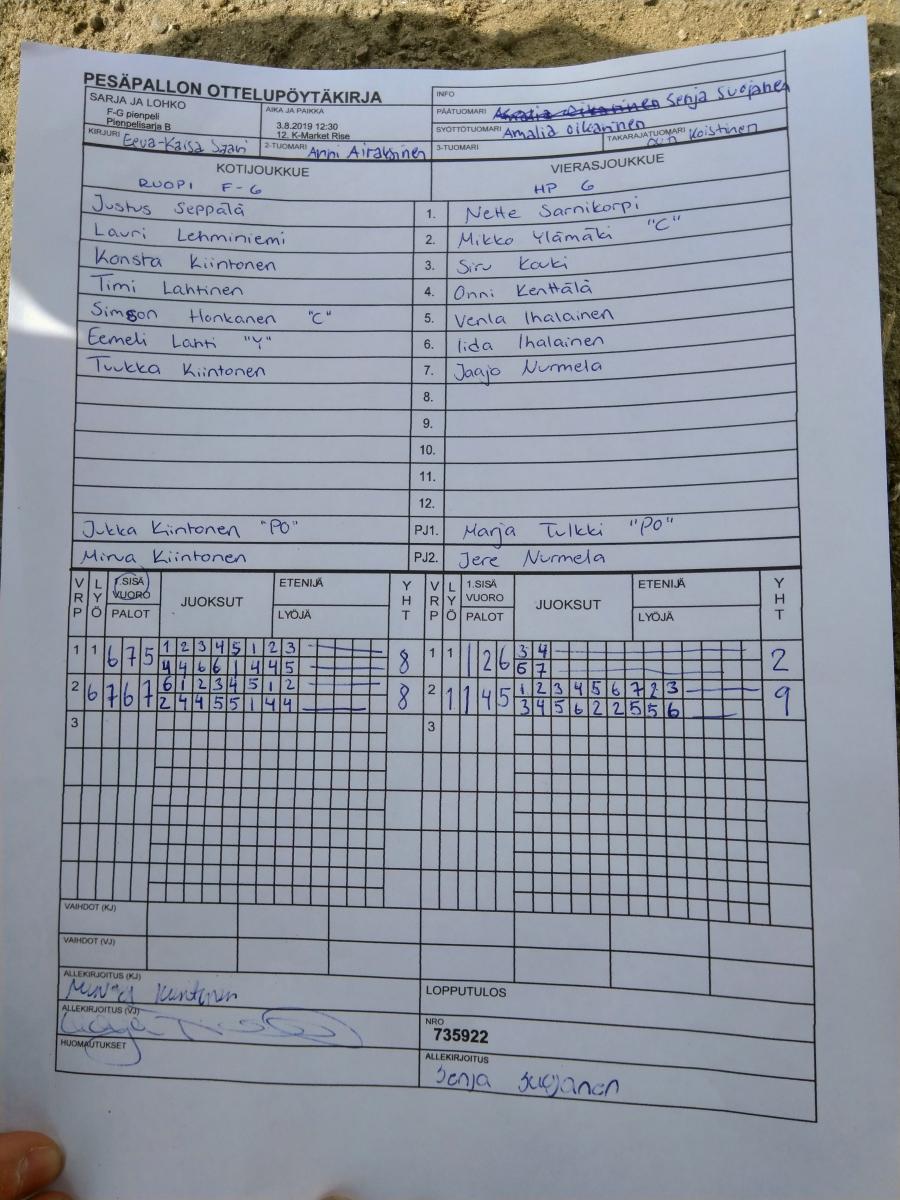 PESÄPALLON OTTELUPÖYTÄKIRJA
SARJA JA LOHKO
F-G pienpeli
Pienpelisarja B
AIKA JA PAIKKA
3.8.2019 12:30
12. K-Market Rise
INFO
PÄÄTUOMARI Senja Suojanen
SYÖTTÖTUOMARI Amalia Oikarinen
TAKARAJATUOMARI Koistinen
KIRJURI Eeva-Kaisa Saari
2-TUOMARI Anni Airaksinen
3-TUOMARI
KOTIJOUKKUE VIERASJOUKKUE
RUOPI F-G HP G
Justus Seppälä 1. Nette Sarnikorpi
Lauri Lehminiemi 2. Mikko Ylämäki "C"
Konsta Kiintonen 3. Siru Kouki
Timi Lahtinen 4. Onni Kenttälä
Simson Honkanen "C" 5. Venla Ihalainen
Eemeli Lahti "Y" 6. Iida Ihalainen
Tuukka Kiintonen 7. Jaajo Nurmela
8.
9.
10.
11.
12.
Jukka Kiintonen "PO" PJ1. Marja Tulkki "PO"
Mirva Kiintonen PJ2. Jere Nurmela
VRP LYÖ 1.SISÄ VUORO PALOT JUOKSUT ETENIJÄ LYÖJÄ YHT VRP LYÖ 1.SISÄ VUORO PALOT JUOKSUT ETENIJÄ LYÖJÄ YHT
1 1 6 7 5 1 2 3 4 5 1 2 3 8 1 1 1 2 6 3 4 2
4 4 6 6 1 4 4 5 6 7
2 6 7 6 7 6 1 2 3 4 5 1 2 8 2 1 1 4 5 1 2 3 4 5 6 7 2 3 9
2 4 4 5 5 1 4 4 3 4 5 6 2 2 5 5 6
3 3
VAIHDOT (KJ)
VAIHDOT (VJ)
ALLEKIRJOITUS (KJ)
Kiintonen
LOPPUTULOS
ALLEKIRJOITUS (VJ)
NRO
735922
HUOMAUTUKSET
ALLEKIRJOITUS
Senja Suojanen